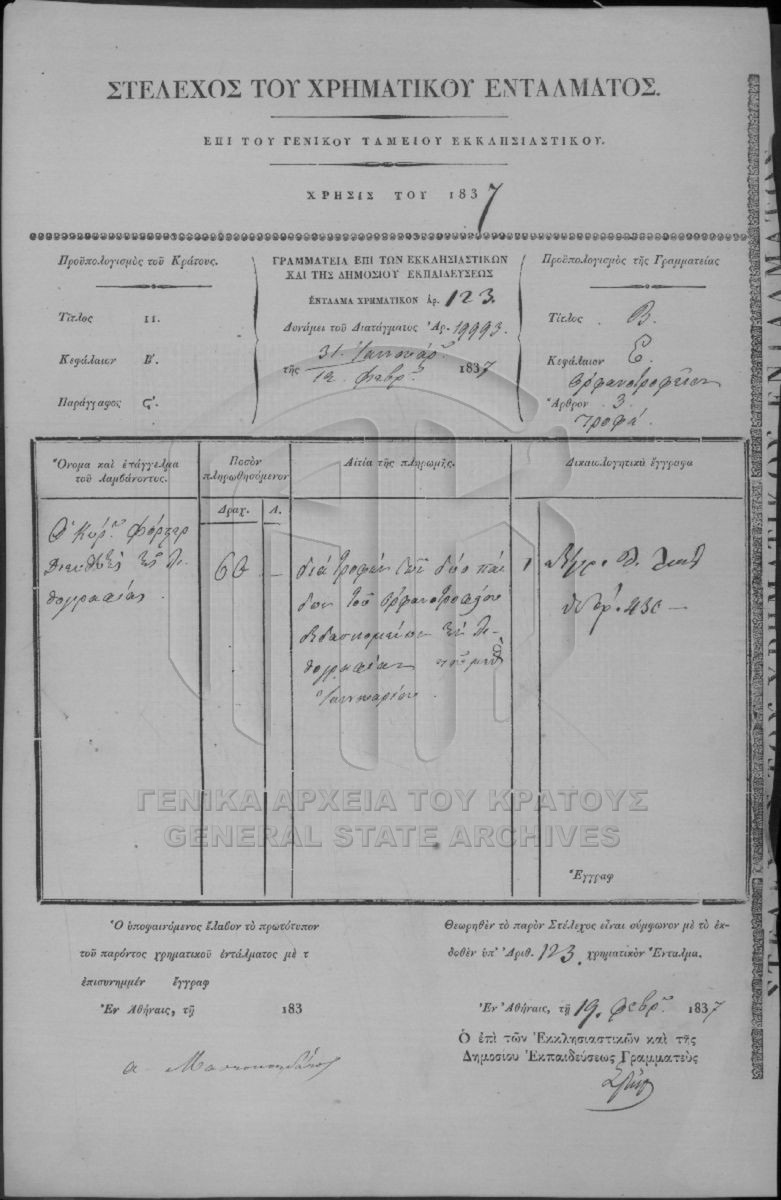 ΣΤΕΛΕΧΟΣ ΤΟΥ ΧΡΗΜΑΤΙΚΟΥ ΕΝΤΑΛΜΑΤΟΣ.
ΕΠΙ ΤΟΥ ΓΕΝΙΚΟΥ ΤΑΜΕΙΟΥ ΕΚΚΛΗΣΙΑΣΤΙΚΟΥ.
ΧΡΗΣΙΣ ΤΟΥ 1837
Προϋπολογισμὸς τοῦ Κράτους.
Τίτλος ΙΙ.
Κεφάλαιον Β'.
Παράγραφος ς'.
ΓΡΑΜΜΑΤΕΙΑ ΕΠΙ ΤΩΝ ΕΚΚΛΗΣΙΑΣΤΙΚΩΝ
ΚΑΙ ΤΗΣ ΔΗΜΟΣΙΟΥ ΕΚΠΑΙΔΕΥΣΕΩΣ
ΕΝΤΑΛΜΑ ΧΡΗΜΑΤΙΚΟΝ Ἀρ. 123.
Δυνάμει τοῦ Διατάγματος Ἀρ. 19993.
31. Ἰαννουαρ.
τῆς 12. Φεβρ. 1837
Προϋπολογισμὸς τῆς Γραμματείας
Τίτλος Β.
Κεφάλαιον Ε.
Ὀρφανοτροφεῖον
Ἄρθρον 3.
τροφὰ
Ὄνομα καὶ ἐπάγγελμα
τοῦ λαμβάνοντος.
Ποσὸν
πληρωθησόμενον
Δραχ. Λ.
Αἰτία τῆς πληρωμῆς.
Δικαιολογητικὰ ἔγγραφα
Ὁ Κύρ. Φόρτερ
Διευθτὴς τῆς Λι
θογραφίας.
60 —
διὰ τροφὴν τῶν δύο παί
δων τοῦ Ὀρφανοτροφείου
διδασκομένων τὴν Λι-
θογραφίαν τοῦ μην
Ἰαννουαρίου.
1
430 —
Ἔγγραφ
Ὁ ὑποφαινόμενος ἔλαβον τὸ πρωτότυπον
τοῦ παρόντος χρηματικοῦ ἐντάλματος μὲ τ
ἐπισυνημμέν ἔγγραφ
Ἐν Ἀθήναις, τῇ 183
Θεωρηθὲν τὸ παρὸν Στέλεχος εἶναι σύμφωνον μὲ τὸ ἐκ-
δοθὲν ὑπ' Ἀριθ. 123. χρηματικὸν Ἔνταλμα.
Ἐν Ἀθήναις, τῇ 19. Φεβρ. 1837
Ὁ ἐπὶ τῶν Ἐκκλησιαστικῶν καὶ τῆς
Δημοσίου Ἐκπαιδεύσεως Γραμματεὺς
ΓΕΝΙΚΑ ΑΡΧΕΙΑ ΤΟΥ ΚΡΑΤΟΥΣ
GENERAL STATE ARCHIVES